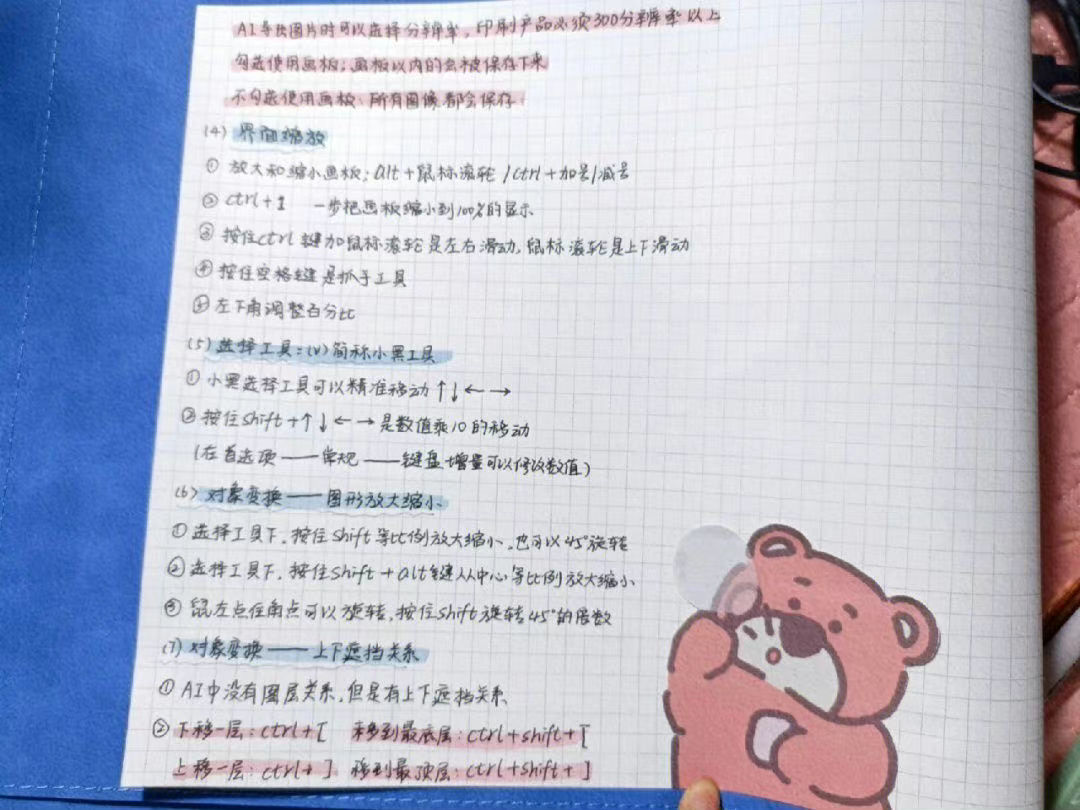 AI导出图片时可以选择分辨率,印刷产品必须300分辨率以上
勾选使用画板:画板以内的会被保存下来
不勾选使用画板:所有图像都会保存
(4) 界面缩放
① 放大和缩小画板:alt+鼠标滚轮 /ctrl+加号/减号
② ctrl+1 一步把画板缩小到100%的显示
③ 按住ctrl键加鼠标滚轮是左右滑动,鼠标滚轮是上下滑动
④ 按住空格键是抓手工具
⑤ 左下角调整百分比
(5) 选择工具:(V)简称小黑工具
① 小黑选择工具可以精准移动↑↓←→
② 按住shift+↑↓←→是数值乘10的移动
(在首选项——常规——键盘增量可以修改数值)
(6) 对象变换——图形放大缩小
① 选择工具下,按住shift等比例放大缩小,也可以45°旋转
② 选择工具下,按住shift+alt键从中心等比例放大缩小
③ 鼠左点住角点可以旋转,按住shift旋转45°的倍数
(7) 对象变换——上下遮挡关系
① AI中没有图层关系,但是有上下遮挡关系
② 下移一层:ctrl+[ 移到最底层:ctrl+shift+[
上移一层:ctrl+] 移到最顶层:ctrl+shift+]